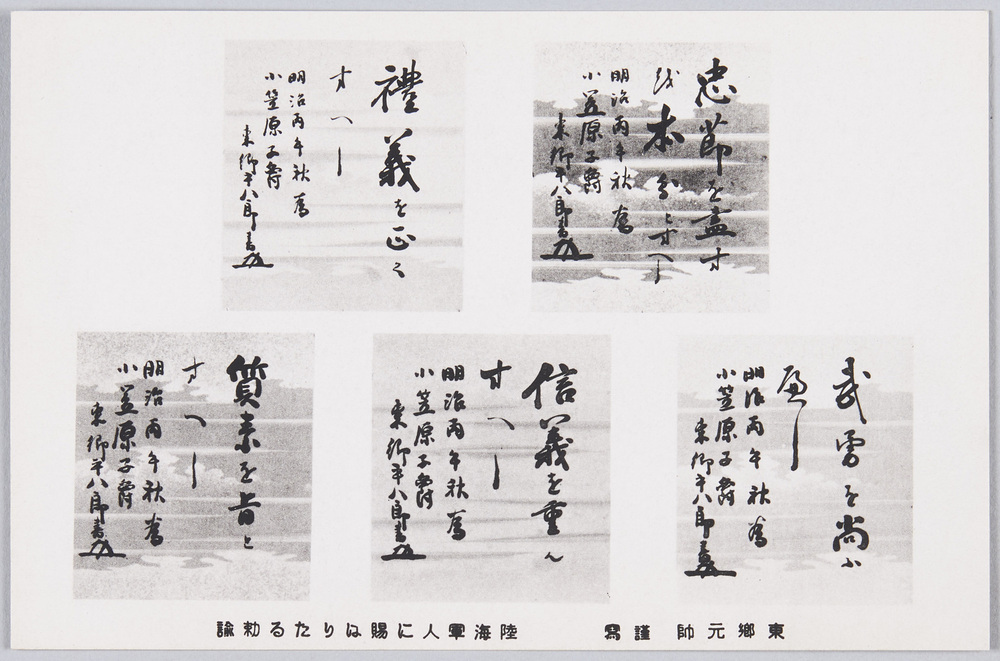 忠節を盡す
を本分とすへし
明治丙午秋 為
小笠原子爵
東郷平八郎書
禮義を正く
すへし
明治丙午秋 為
小笠原子爵
東郷平八郎書
武勇を尚ふ
へし
明治丙午秋 為
小笠原子爵
東郷平八郎書
信義を重ん
すへし
明治丙午秋 為
小笠原子爵
東郷平八郎書
質素を旨と
すへし
明治丙午秋 為
小笠原子爵
東郷平八郎書
東郷元帥 謹寫 陸海軍人に賜はりたる勅諭